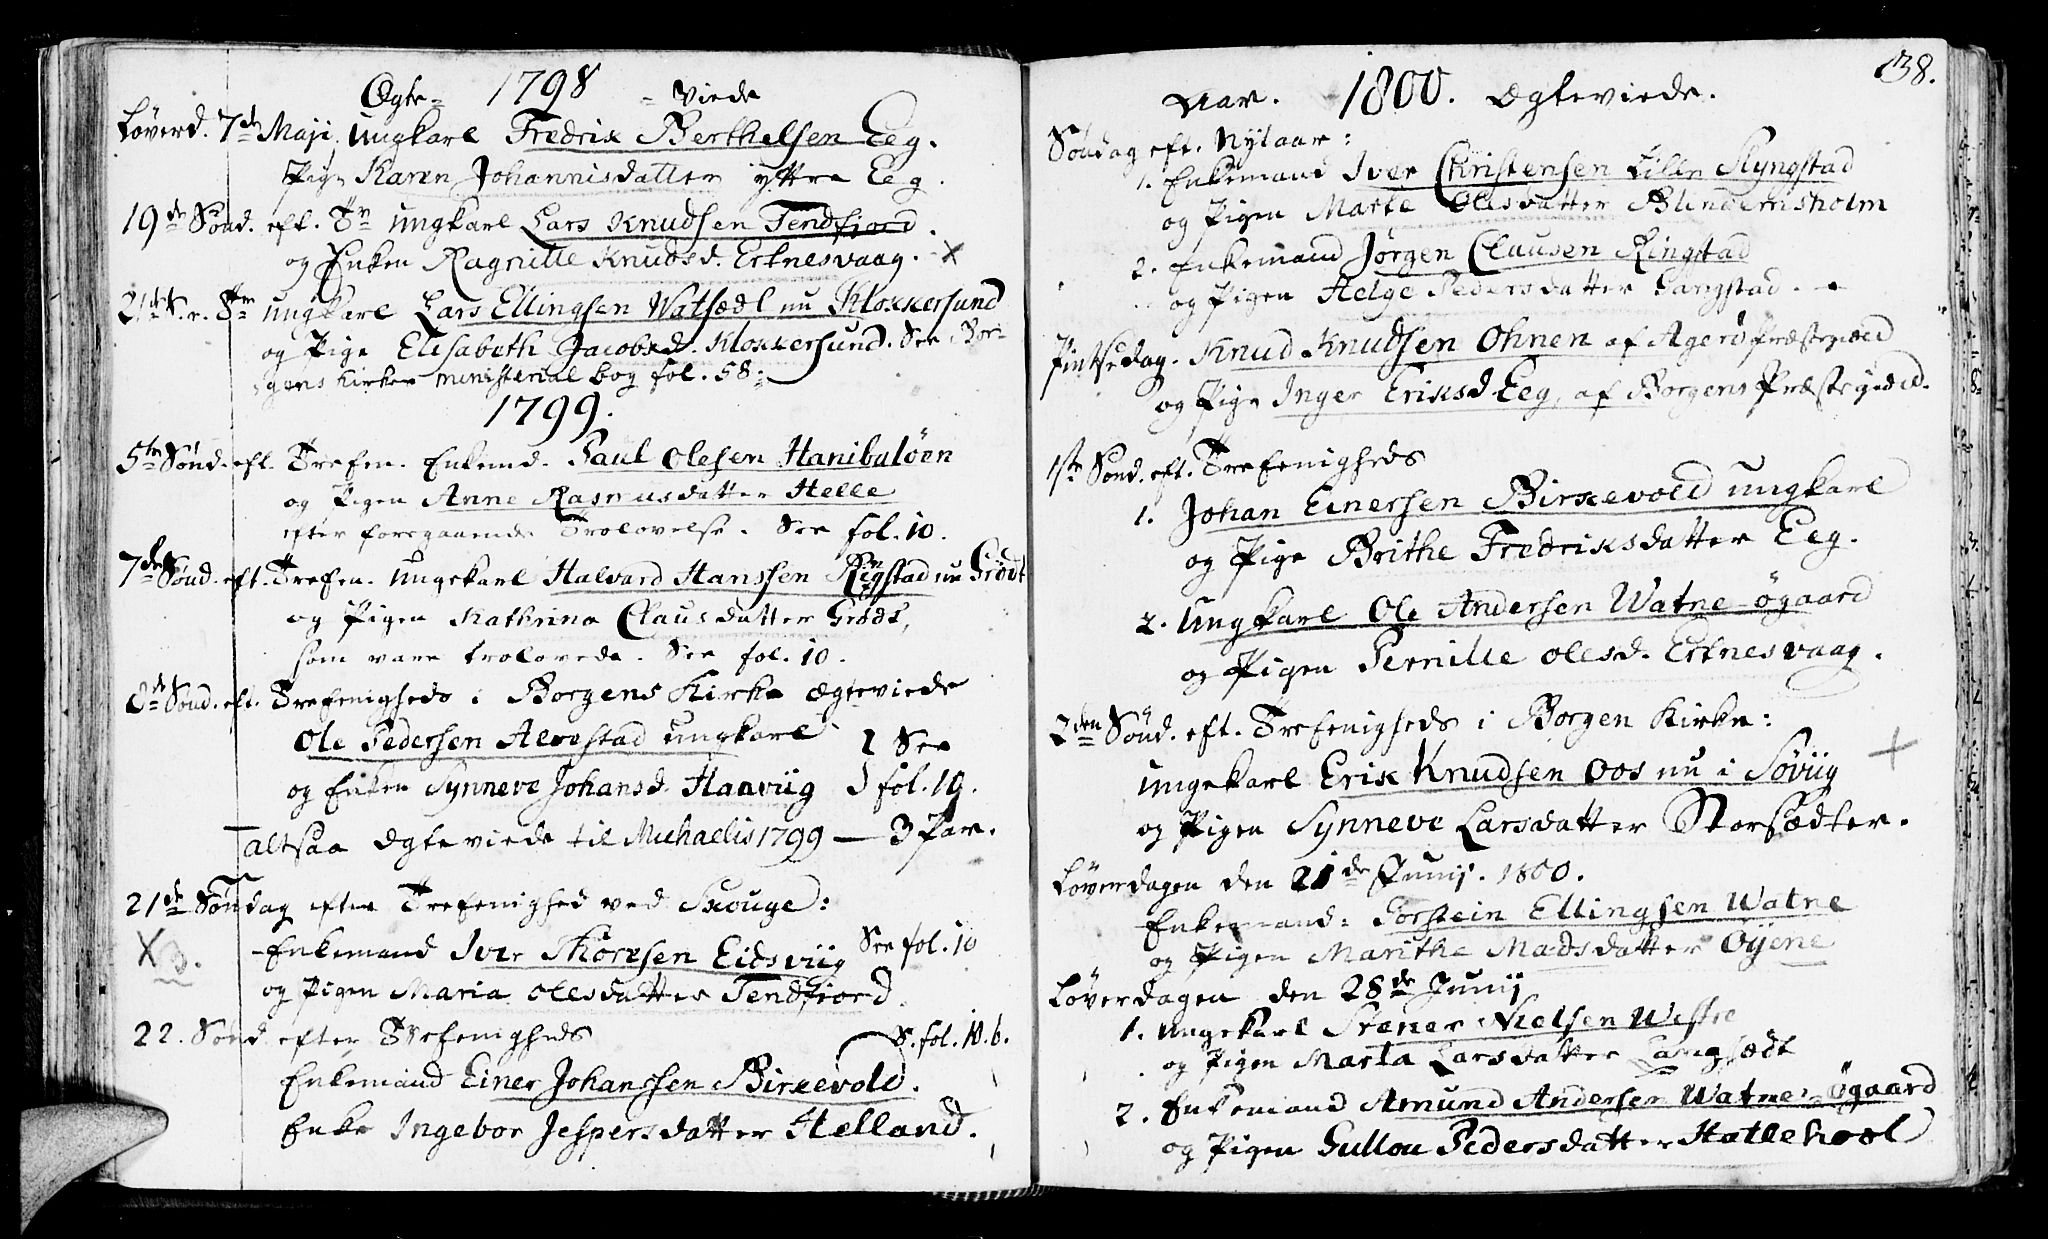 Ægte- 1798 - Viede
Løverd. 7de Maji. Ungkarl Fredrik Berthelsen Eeg.
Pige Karen Johannisdatter yttre Eeg.
19de Sønd. eft. Tr. Ungkarl Lars Knudsen Tendfjord.
og Enken Ragnille Knudsd. Erknesvaag. X
21de S. e. Tr. ungkarl Lars Ellingsen Watsædl nu Klokkersund
og Pige Elisabeth Jacobsd. Klokkersund. See Bor-
gens Kirkes ministerial bog fol. 58.
1799.
5te Sønd. eft. Trefen. Enkemd. Paul Olesen Hanibaløen
og Pigen Anne Rasmusdatter Helle
efter foregaaende Trolovelse. See fol. 10.
7de Sønd. eft. Trefen. Ungekarl Halvard Hanssen Ringstad nu Grødt
og Pigen Kathrina Clausdatter Grødt,
som vare trolovede. See fol. 10.
8de Sønd. eft. Trefenigheds i Borgens Kirke Ægteviede
Ole Pedersen Alvestad ungkarl } See
og Enken Synneve Johansd. Haaviig } fol. 10.
altsaa Ægteviede til Michaelis 1799 — 3 Par.
21de Søndag efter Trefenighed ved Skouge:
X 3. Enkemand Iver Thoresen Eidsviig See fol. 10
og Pigen Maria Olesdatter Tendfiord.
22. Sønd. efter Trefenigheds S. fol. 10. b.
Enkemand Einer Johanssen Birkevold.
Enke Ingebor Jespersdatter Helland.
138.
Aar. 1800. Ægteviede.
Søndag eft. Nytaar:
1. Enkemand Iver Christensen Lille Slyngstad
og Pigen Marte Olesdatter Blindemsholm
2. Enkemand Jørgen Clausen Ringstad
og Pigen Helge Pedersdatter Gangstad.
Pintsedag. Knud Knudsen Ohnen af Agerø Præstegield
og Pige Inger Eriksd. Eeg, af Borgens Præstegield.
1ste Sønd. eft. Trefenigheds
1. Johan Einersen Birkevold ungkarl
og Pige Brithe Fredriksdatter Eeg.
2. Ungkarl Ole Andersen Watne-øgaard
og Pigen Pernille Olesd. Erknesvaag.
2den Sønd. eft. Trefenigheds i Borgen Kirke:
ungekarl Erik Knudsen Oos nu i Søviig +
og Pigen Synneve Larsdatter Storsædter.
Løverdagen den 21de Junij. 1800.
Enkemand: Torstein Ellingsen Watne
og Pigen Marithe Madsdatter Øyene
Løverdagen den 28de Junij
1. Ungekarl Stener Nielsen Westre
og Pigen Marta Larsdatter Langsædt
2. Enkemand Amund Andersen Watne-Øgaard
og Pigen Gullou Pedersdatter Hatlehoel